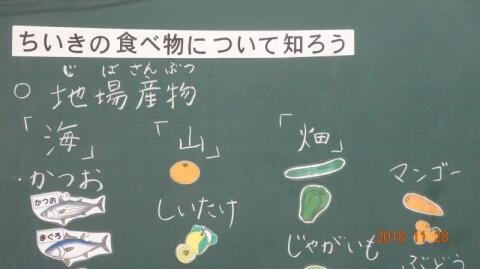 ちいきの食べ物について知ろう
じばさんぶつ
○ 地場産物
「海」 「山」 「畑」
・かつお しいたけ じゃがいも マンゴー
かつお
まぐろ
ぶどう
2018 11 28